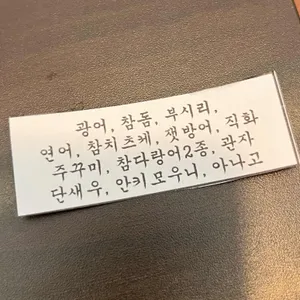 광어, 참돔, 부시리,
연어, 참치 츠케, 잿방어, 직화
주꾸미, 참다랑어2종, 관자
단새우, 안키모우니, 아나고